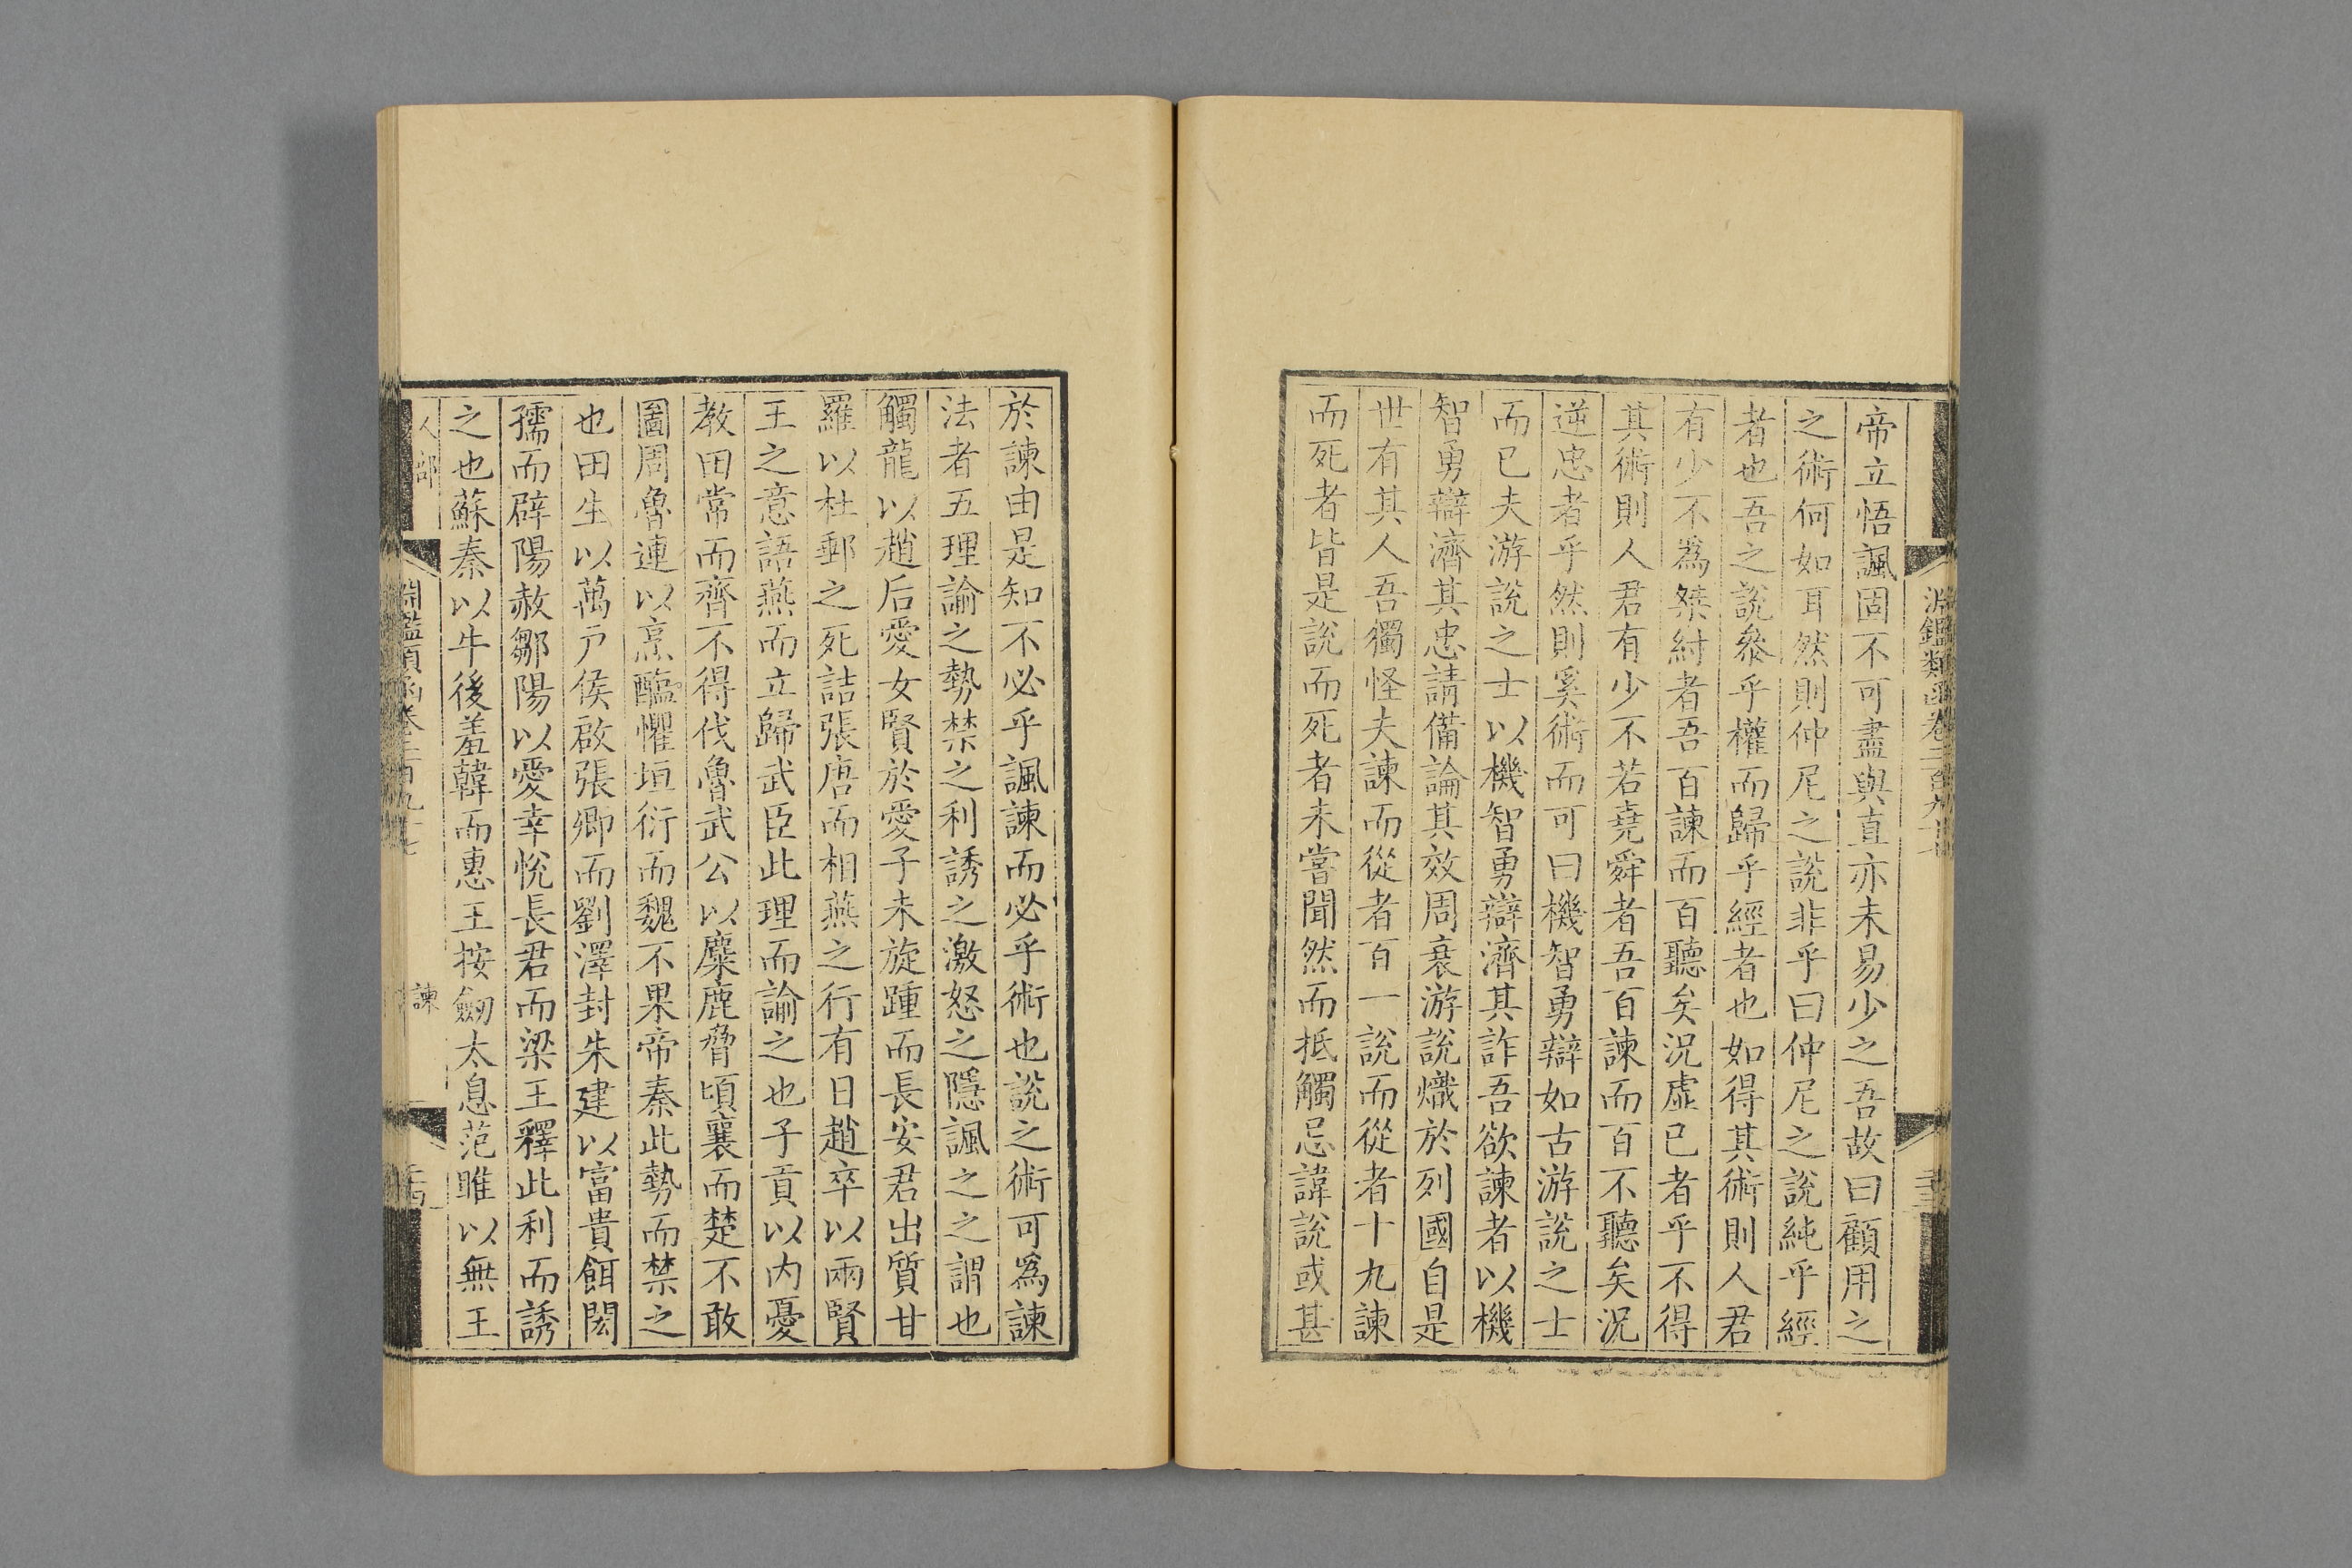 淵鑑類函卷二百九十七
帝立悟諷固不可盡與直亦未易少之吾故曰顧用之
之術何如耳然則仲尼之說非乎曰仲尼之說純乎經
者也吾之說參乎權而歸乎經者也如得其術則人君
有少不爲桀紂者吾百諫而百聽矣況虛已者乎不得
其術則人君有少不若堯舜者吾百諫而百不聽矣況
逆忠者乎然則奚術而可曰機智勇辯如古游說之士
而已夫游說之士以機智勇辯濟其詐吾欲諫者以機
智勇辯濟其忠請備論其效周衰游說熾於列國自是
世有其人吾獨怪夫諫而從者百一說而從者十九諫
而死者皆是說而死者未嘗聞然而抵觸忌諱說或甚
於諫由是知不必乎諷諫而必乎術也說之術可爲諫
法者五理諭之勢禁之利誘之激怒之隱諷之之謂也
觸龍以趙后愛女賢於愛子未旋踵而長安君出質甘
羅以杜郵之死詰張唐而相燕之行有日趙卒以兩賢
王之意語燕而立歸武臣此理而諭之也子貢以內憂
教田常而齊不得伐魯武公以麋鹿脅頃襄而楚不敢
圖周魯連以烹醢懼垣衍而魏不果帝秦此勢而禁之
也田生以萬戶侯啟張卿而劉澤封朱建以富貴餌閎
孺而辟陽赦鄒陽以愛幸悅長君而梁王釋此利而誘
之也蘇秦以牛後羞韓而惠王按劍太息范雎以無王
人部
淵鑑類函卷二百九十七
諫